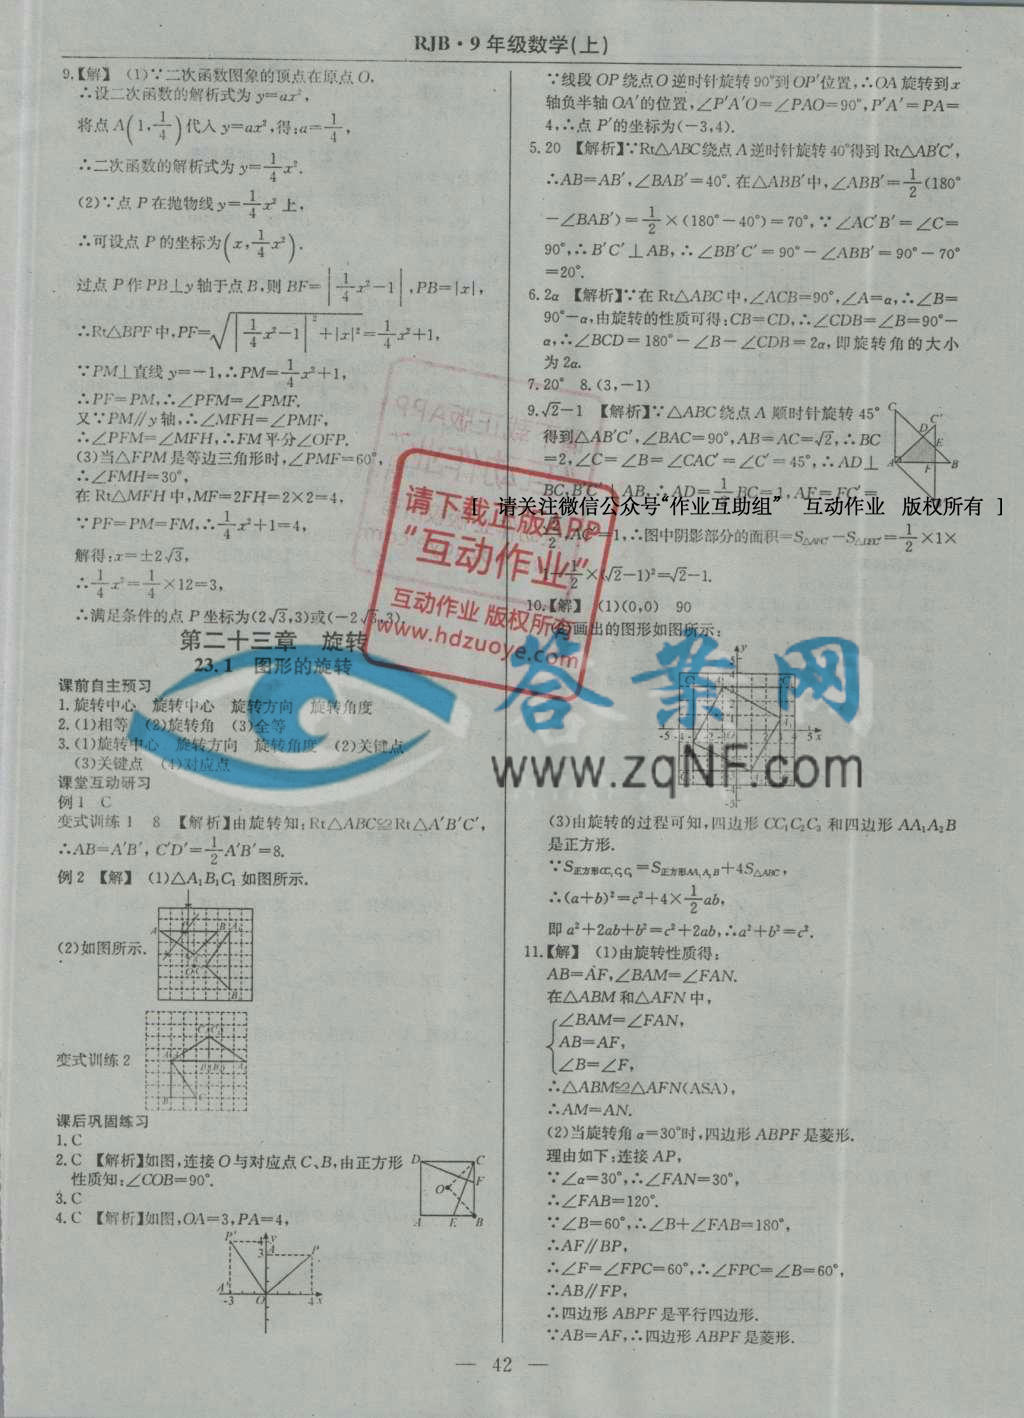 RJB·9年级数学(上)
9.【解】 (1)∵二次函数图象的顶点在原点O,
∴设二次函数的解析式为 y=ax²,
将点A(1,1/4)代入 y=ax²,得:a=1/4,
∴二次函数的解析式为 y=1/4x².
(2)∵点 P 在抛物线 y=1/4x² 上,
∴可设点 P 的坐标为(x,1/4x²).
过点 P 作 PB⊥y 轴于点 B,则 BF=|1/4x²-1|,PB=|x|,
∴Rt△BPF 中,PF=√(|1/4x²-1|²+|x|²)=1/4x²+1,
∵PM⊥直线 y=-1,∴PM=1/4x²+1,
∴PF=PM,∴∠PFM=∠PMF.
又∵PM∥y 轴,∴∠MFH=∠PMF,
∴∠PFM=∠MFH,∴FM 平分∠OFP.
(3)当△FPM 是等边三角形时,∠PMF=60°,
∴∠FMH=30°,
在 Rt△MFH 中,MF=2FH=2×2=4,
∵PF=PM=FM,∴1/4x²+1=4,
解得:x=±2√3,
∴1/4x²=1/4×12=3,
∴满足条件的点 P 坐标为(2√3,3)或(-2√3,3).
第二十三章 旋转
23.1 图形的旋转
课前自主预习
1.旋转中心 旋转中心 旋转方向 旋转角度
2.(1)相等 (2)旋转角 (3)全等
3.(1)旋转中心 旋转方向 旋转角度 (2)关键点
(3)关键点 (4)对应点
课堂互动研习
例1 C
变式训练1 8 【解析】由旋转知:Rt△ABC≌Rt△A′B′C′,
∴AB=A′B′, C′D′=1/2A′B′=8.
例2 【解】 (1)△A₁B₁C₁ 如图所示.
(2)如图所示.
变式训练2
课后巩固练习
1.C
2.C 【解析】如图,连接 O 与对应点 C、B,由正方形
性质知:∠COB=90°.
D C F O A E B
3.C
4.C 【解析】如图,OA=3,PA=4,
P′ 4 y 3 A P
A′ -3 O 4 x
∵线段 OP 绕点 O 逆时针旋转 90°到 OP′位置,∴OA 旋转到 x
轴负半轴 OA′的位置,∠P′A′O=∠PAO=90°,P′A′=PA=
4,∴点 P′的坐标为(-3,4).
5.20 【解析】∵Rt△ABC绕点 A 逆时针旋转 40°得到 Rt△AB′C′,
∴AB=AB′,∠BAB′=40°.在△ABB′中,∠ABB′=1/2(180°
-∠BAB′)=1/2×(180°-40°)=70°,∵∠AC′B′=∠C=
90°,∴B′C′⊥AB,∴∠BB′C′=90°-∠ABB′=90°-70°
=20°.
6.2α 【解析】∵在 Rt△ABC 中,∠ACB=90°,∠A=α,∴∠B=
90°-α,由旋转的性质可得:CB=CD,∴∠CDB=∠B=90°-
α,∴∠BCD=180°-∠B-∠CDB=2α,即旋转角的大小
为 2α.
7.20° 8.(3,-1)
9.√2-1 【解析】∵△ABC 绕点 A 顺时针旋转 45°
得到△AB′C′,∠BAC=90°,AB=AC=√2,∴BC
=2,∠C=∠B=∠CAC′=∠C′=45°,∴AD⊥
BC,B′C′⊥AB,∴AD=1/2BC=1,AF=FC′=
[ 请关注微信公众号“作业互助组” 互动作业 版权所有 ]
√2/2,AC′=1,∴图中阴影部分的面积=S△AFC′-S△DEC′=1/2×1×
1-1/2×(√2-1)²=√2-1.
10.【解】 (1)(0,0) 90
(2)画出的图形如图所示:
(3)由旋转的过程可知,四边形 CC₁C₂C₃ 和四边形 AA₁A₂B
是正方形.
∵S正方形CC₁C₂C₃=S正方形AA₁A₂B+4S△ABC,
∴(a+b)²=c²+4×1/2ab,
即 a²+2ab+b²=c²+2ab,∴a²+b²=c².
11.【解】 (1)由旋转性质得:
AB=AF,∠BAM=∠FAN.
在△ABM 和△AFN 中,
∠BAM=∠FAN,
AB=AF,
∠B=∠F,
∴△ABM≌△AFN(ASA),
∴AM=AN.
(2)当旋转角 α=30°时,四边形 ABPF 是菱形.
理由如下:连接 AP,
∵∠α=30°,∴∠FAN=30°,
∴∠FAB=120°.
∵∠B=60°,∴∠B+∠FAB=180°,
∴AF∥BP,
∴∠F=∠FPC=60°,∴∠FPC=∠B=60°,
∴AB∥FP,
∴四边形 ABPF 是平行四边形.
∵AB=AF,∴四边形 ABPF 是菱形.
— 42 —
请下载正版APP
“互动作业”
互动作业 版权所有
www.hdzuoye.com
答案网
www.zqNF.com